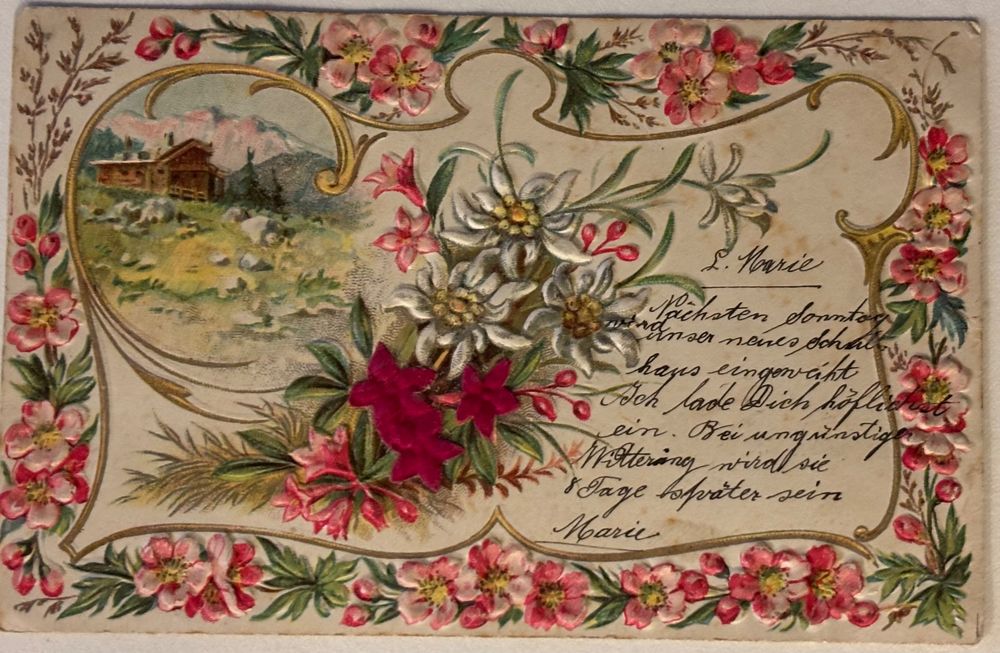 L. Marie
Nächsten Sonntag
wird unser neues Schul-
haus eingeweiht
Ich lade Dich höflichst
ein. Bei ungünstiger
Witterung wird sie
8 Tage später sein
Marie